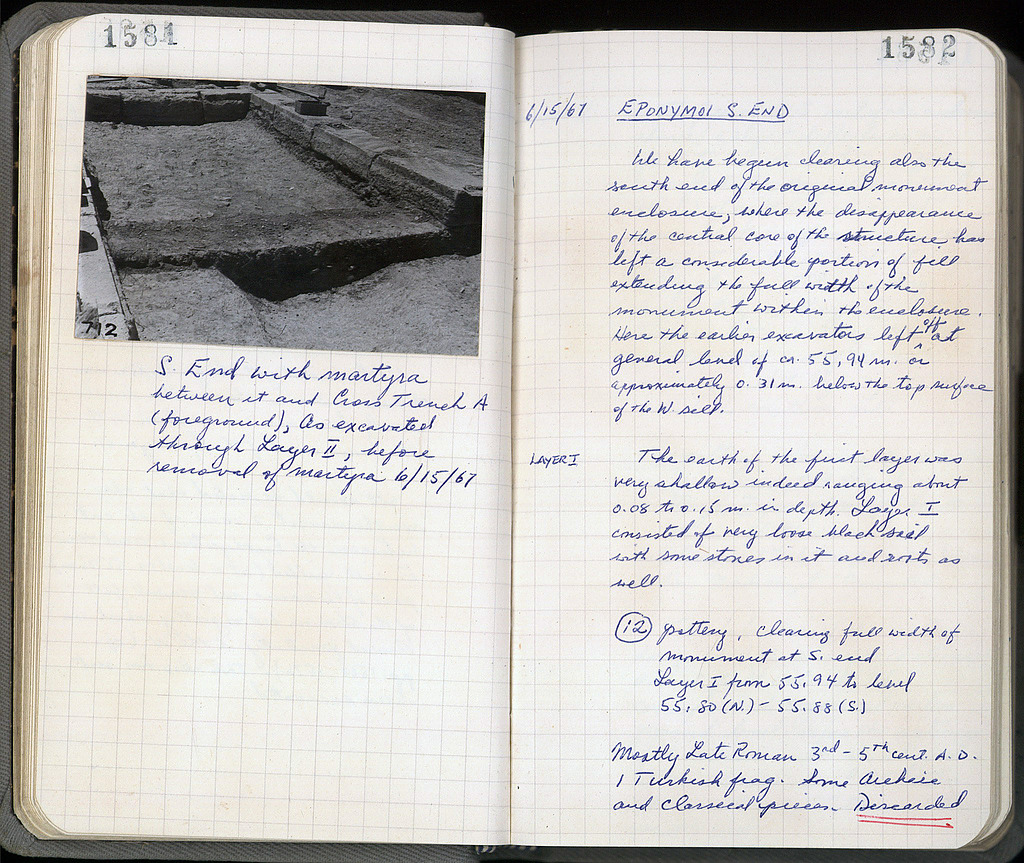 1581
712
S. End with martyra
between it and Cross Trench A
(foreground), as excavated
through Layer II, before
removal of martyra 6/15/67
1582
6/15/67 EPONYMOI S. END
We have begun clearing also the
south end of the original monument
enclosure, where the disappearance
of the central core of the structure has
left a considerable portion of fill
extending the full width of the
monument within the enclosure.
Here the earlier excavators left off at
general level of ca. 55,94 m. or
approximately 0.31 m. below the top surface
of the W. sill.
LAYER I The earth of the first layer was
very shallow indeed ranging about
0.08 to 0.15 m. in depth. Layer I
consisted of very loose black soil
with some stones in it and roots as
well.
12 pottery, clearing full width of
monument at S. end
Layer I from 55.94 to level
55.80 (N.) - 55.88 (S.)
Mostly Late Roman 3rd - 5th cent. A.D.
1 Turkish frag. Some Archaic
and Classical pieces. Discarded